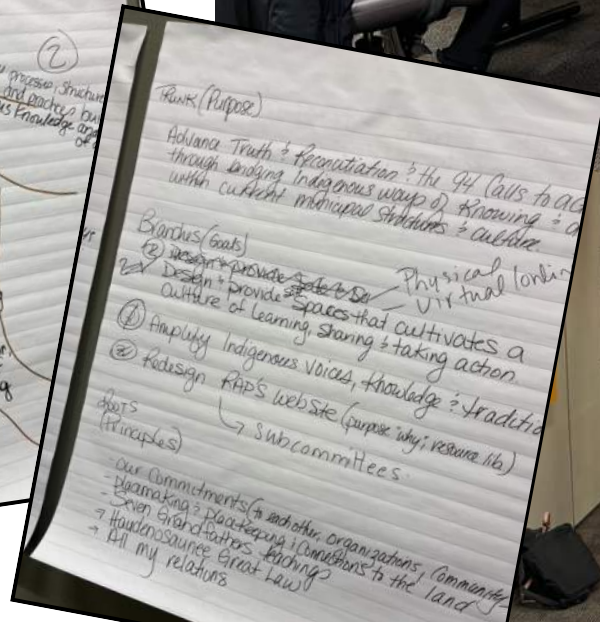 ②
processes, structure
and practices bu
us knowledge an
of
TRUNK (Purpose)
Advance Truth & Reconciliation & the 94 Calls to ac
through bridging Indigenous ways of Knowing & a
within current municipal structures & culture.
Branches (Goals)
Design & provide
Physical
Virtual (onlin
Design & provide spaces that cultivates a
culture of learning, sharing & taking action.
① Amplify Indigenous voices, knowledge & traditio
② Redesign RAP's website (purpose; why; resource lib.)
↳ subcommittees.
Roots
(Principles)
- Our Commitments (to each other, organizations, community
- Placemaking & placekeeping; Connections to the land
- Seven Grandfathers teachings
→ Haudenosaunee Great Law
→ All my relations